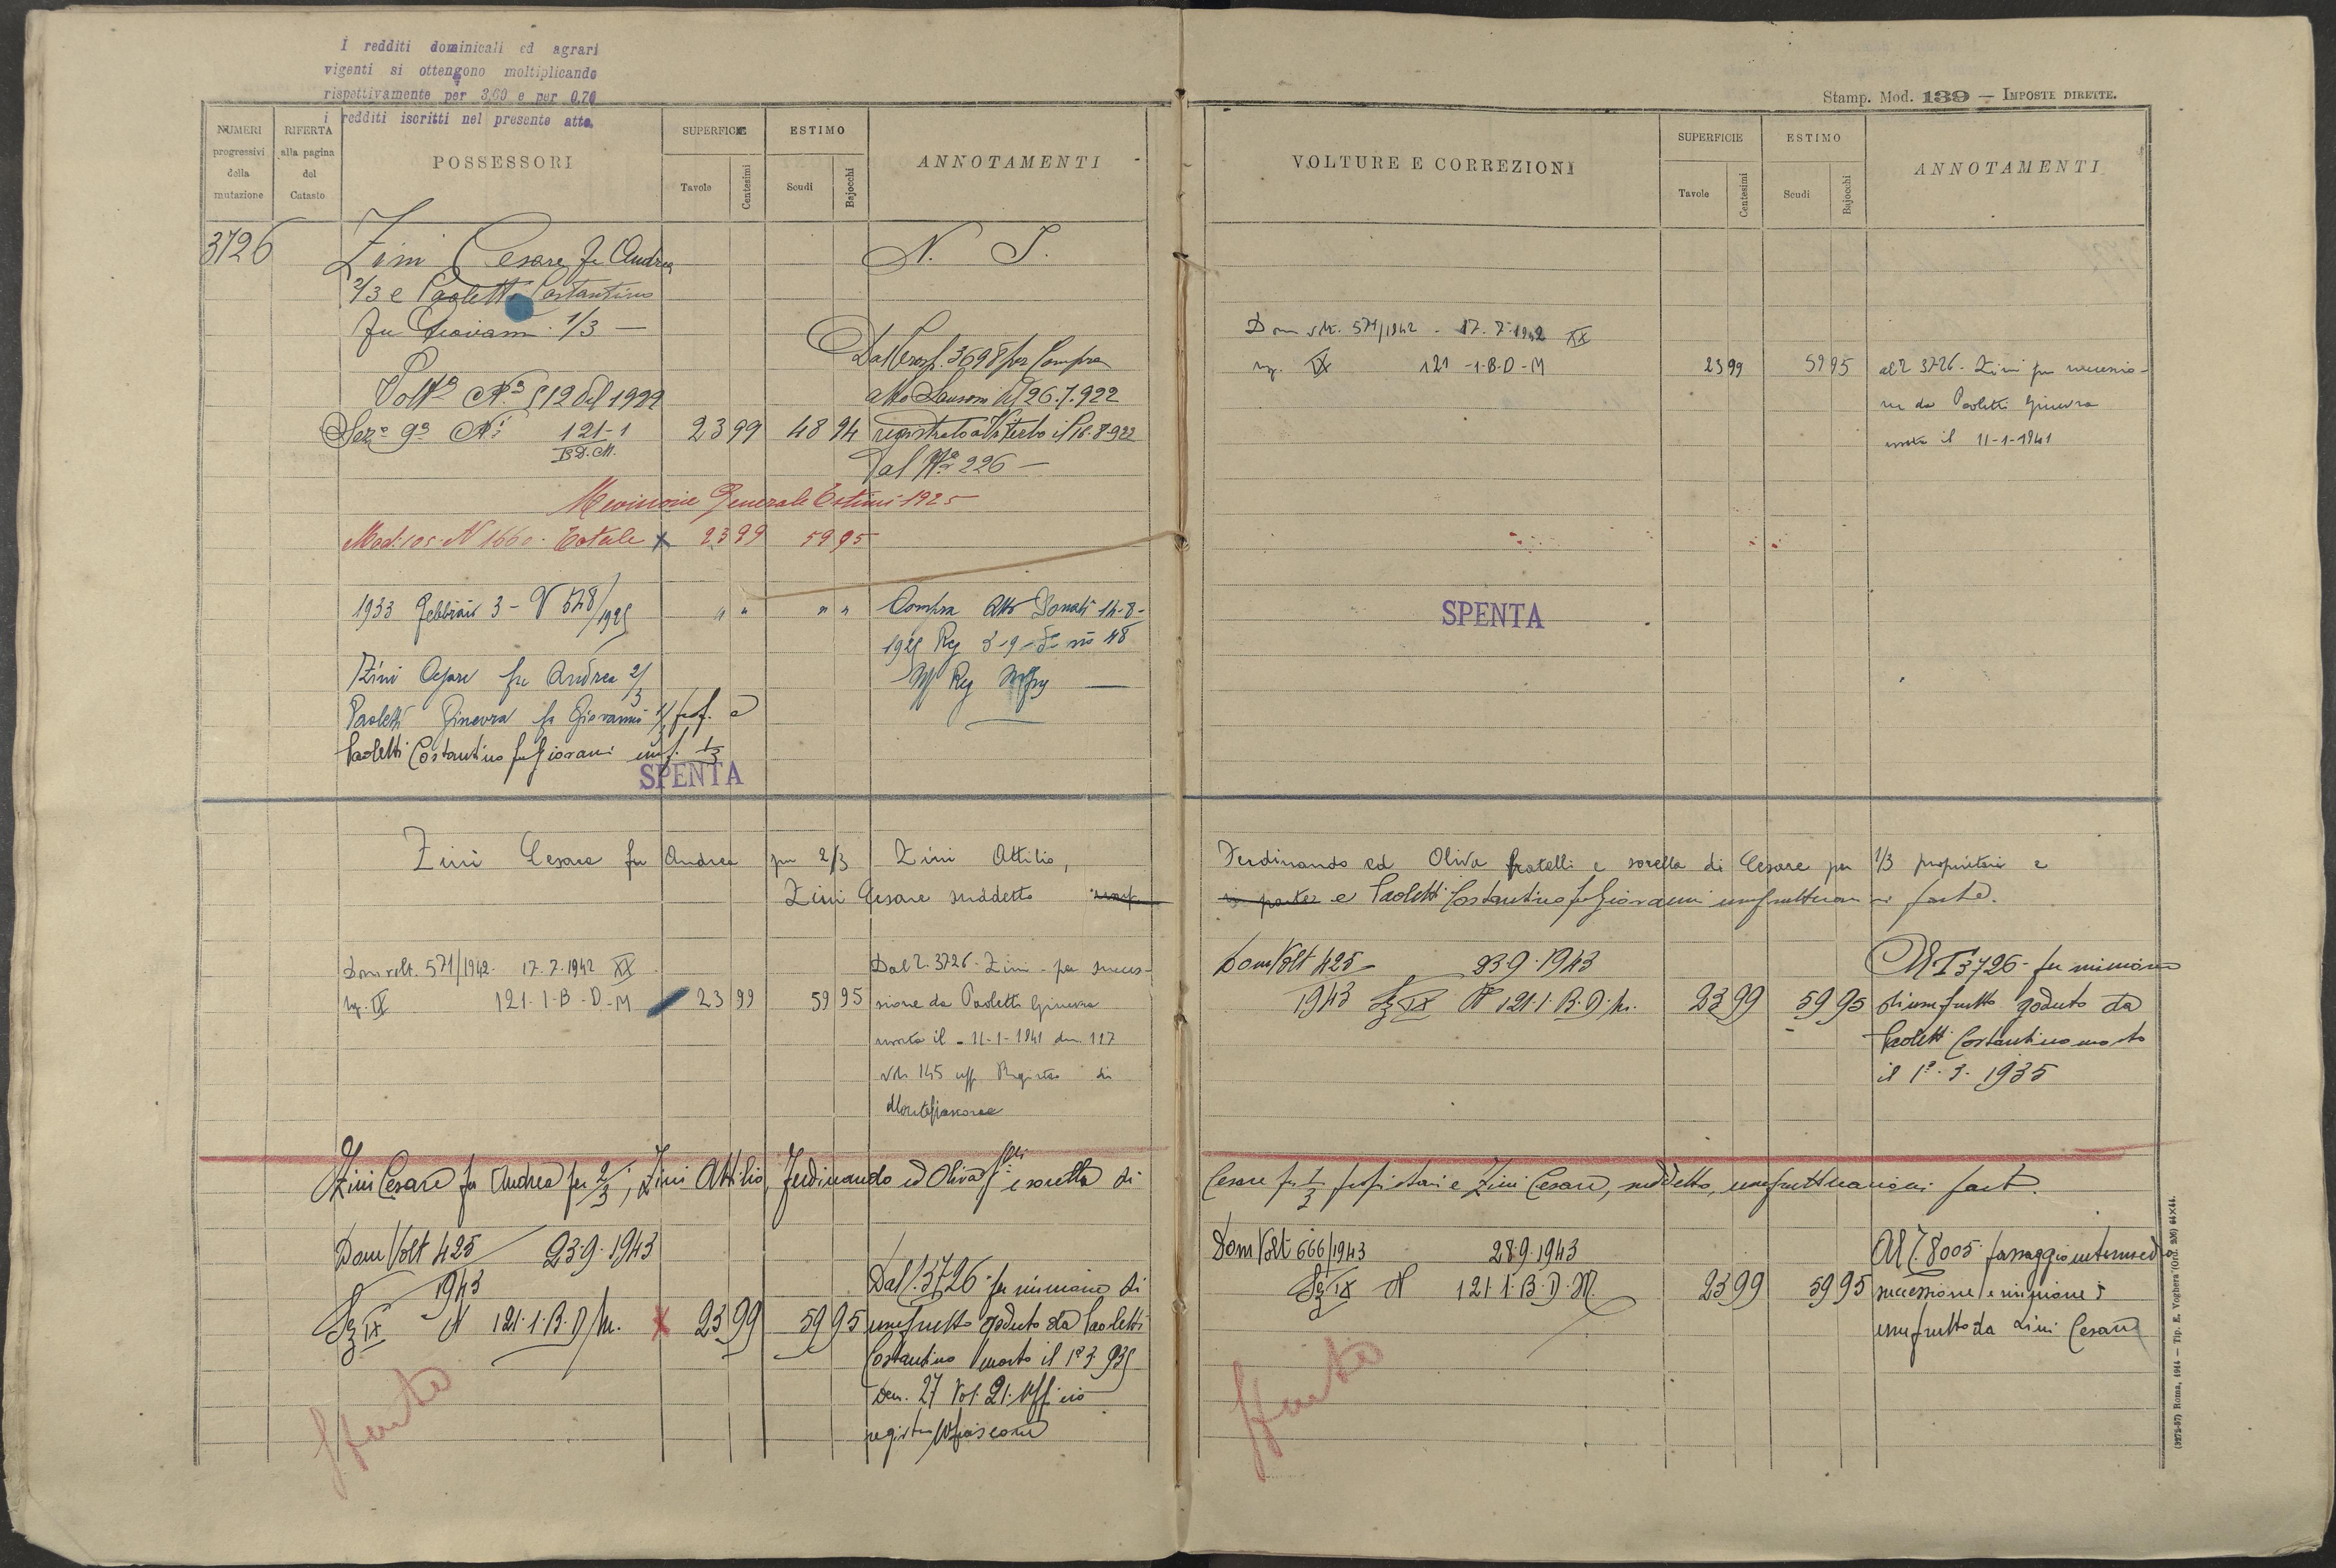 I redditi dominicali ed agrari
vigenti si ottengono moltiplicando
rispettivamente per 3,60 e per 0,70
i redditi iscritti nel presente atto.
NUMERI progressivi della mutazione
RIFERTA alla pagina del Catasto
POSSESSORI
SUPERFICIE
Tavole
Centesimi
ESTIMO
Scudi
Bajocchi
ANNOTAMENTI
3726
Zini Cesare fu Andrea
2/3 e Paoletti Costantino
fu Giovanni 1/3 —
Volta N° 512 del 1922
Sez.e 9a N.i 121-1 23 99 48 94
B.D.M.
Dal Trasp. 3698 per Compra
atto Sansoni del 26.7.922
registrato a Viterbo il 16-8-922
dal N° 226 —
Revisione Generale Estimi 1925
Mod. 105. N 1660. Totale x 23 99 59 95
1933 Febbraio 3 - V 548/1925 " " " "
Compra Atto Donati 14-8-
Zini Cesare fu Andrea 2/3
Paoletti Ginevra fu Giovanni 1/3 prop. e
Paoletti Costantino fu Giovanni usuf. 1/3
SPENTA
Zini Cesare fu Andrea per 2/3 Zini Attilio,
Zini Cesare suddetto
Dom volt. 571/1942. 17.7.1942 XX
sez. IX 121-1-B-D-M 23 99 59 95
Dal 2. 3726. Zini - per succes-
sione da Paoletti Ginevra
morta il - 11-1-1941 den. 117
vol. 145 uff. Registro di
Montefiascone
Zini Cesare fu Andrea per 2/3, Zini Attilio, Ferdinando ed Oliva f.lli e sorella di
Dom Volt 425/1943 23.9.1943
Sez IX N 121.1.B.D.M. x 23 99 59 95
Dal 3726 per riunione di
usufrutto goduto da Paoletti
Costantino morto il 1° 3 935
Den. 27 Vol. 21. Ufficio
registro Mfiascone
Spenta
Stamp. Mod. 139 — IMPOSTE DIRETTE.
VOLTURE E CORREZIONI
SUPERFICIE
Tavole
Centesimi
ESTIMO
Scudi
Bajocchi
ANNOTAMENTI
Dom volt. 571/1942 - 17.7.1942 XX
sez. IX 121-1-B-D-M 23 99 59 95
al 2 3726. Zini per successio-
ne da Paoletti Ginevra
morta il 11-1-1941
SPENTA
Ferdinando ed Oliva fratelli e sorella di Cesare per 1/3 proprietari e
e Paoletti Costantino fu Giovanni usufruttuario in parte.
Dom Volt 425 23-9-1943
1943 Sez IX N 121.1.B.D.M. 23 99 59 95
Al T 3726 - per riunione
di usufrutto goduto da
Paoletti Costantino morto
il 1°.3.1935
Cesare per 1/3 proprietari e Zini Cesare, suddetto, usufruttuario in part.
Dom Volt 666/1943 28.9.1943
Sez IX N 121.1.B.D.M. 23 99 59 95
Al T. 8005 passaggio intermedio
successione e riunione di
usufrutto da Zini Cesare
Spenta
(3272-57) Roma, 1914 — Tip. E. Voghera (Ord. 206) 64×44.